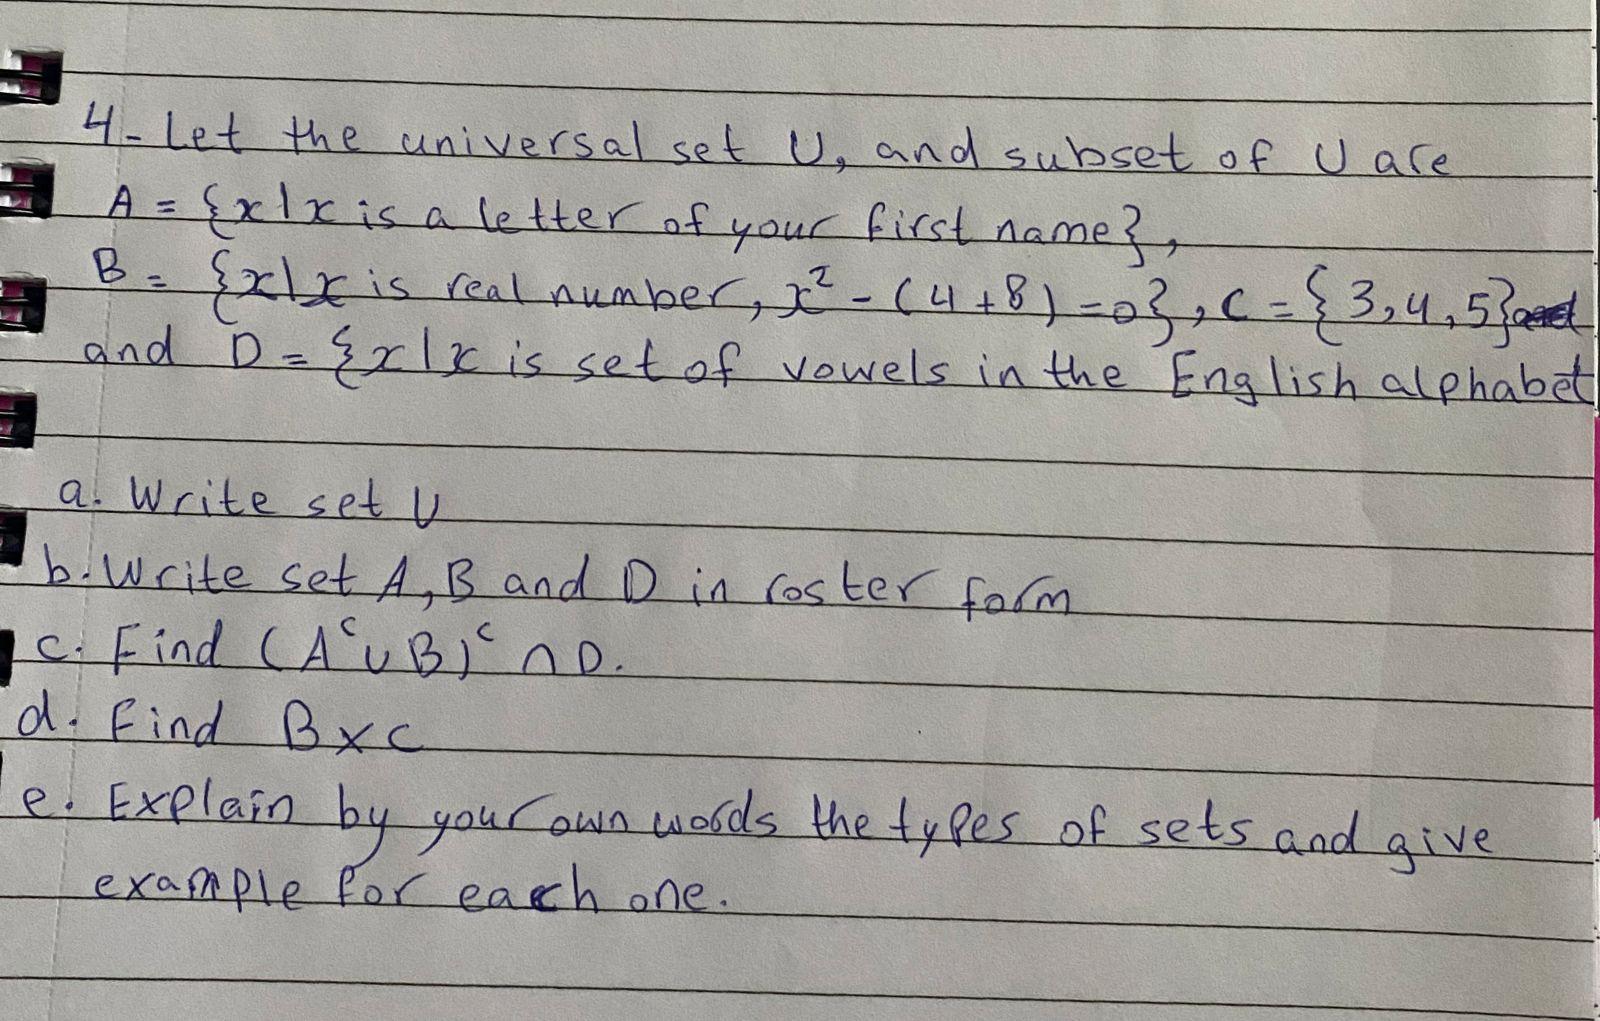 4- Let the universal set U, and subset of U are
A = {x|x is a letter of your first name},
B = {x|x is real number, x² - (4+8) = 0}, C = {3,4,5}
and D = {x|x is set of vowels in the English alphabet
a. Write set U
b. Write set A, B and D in roster form
c. Find (Aᶜ ∪ B)ᶜ ∩ D.
d. Find B×C
e. Explain by your own words the types of sets and give
example for each one.